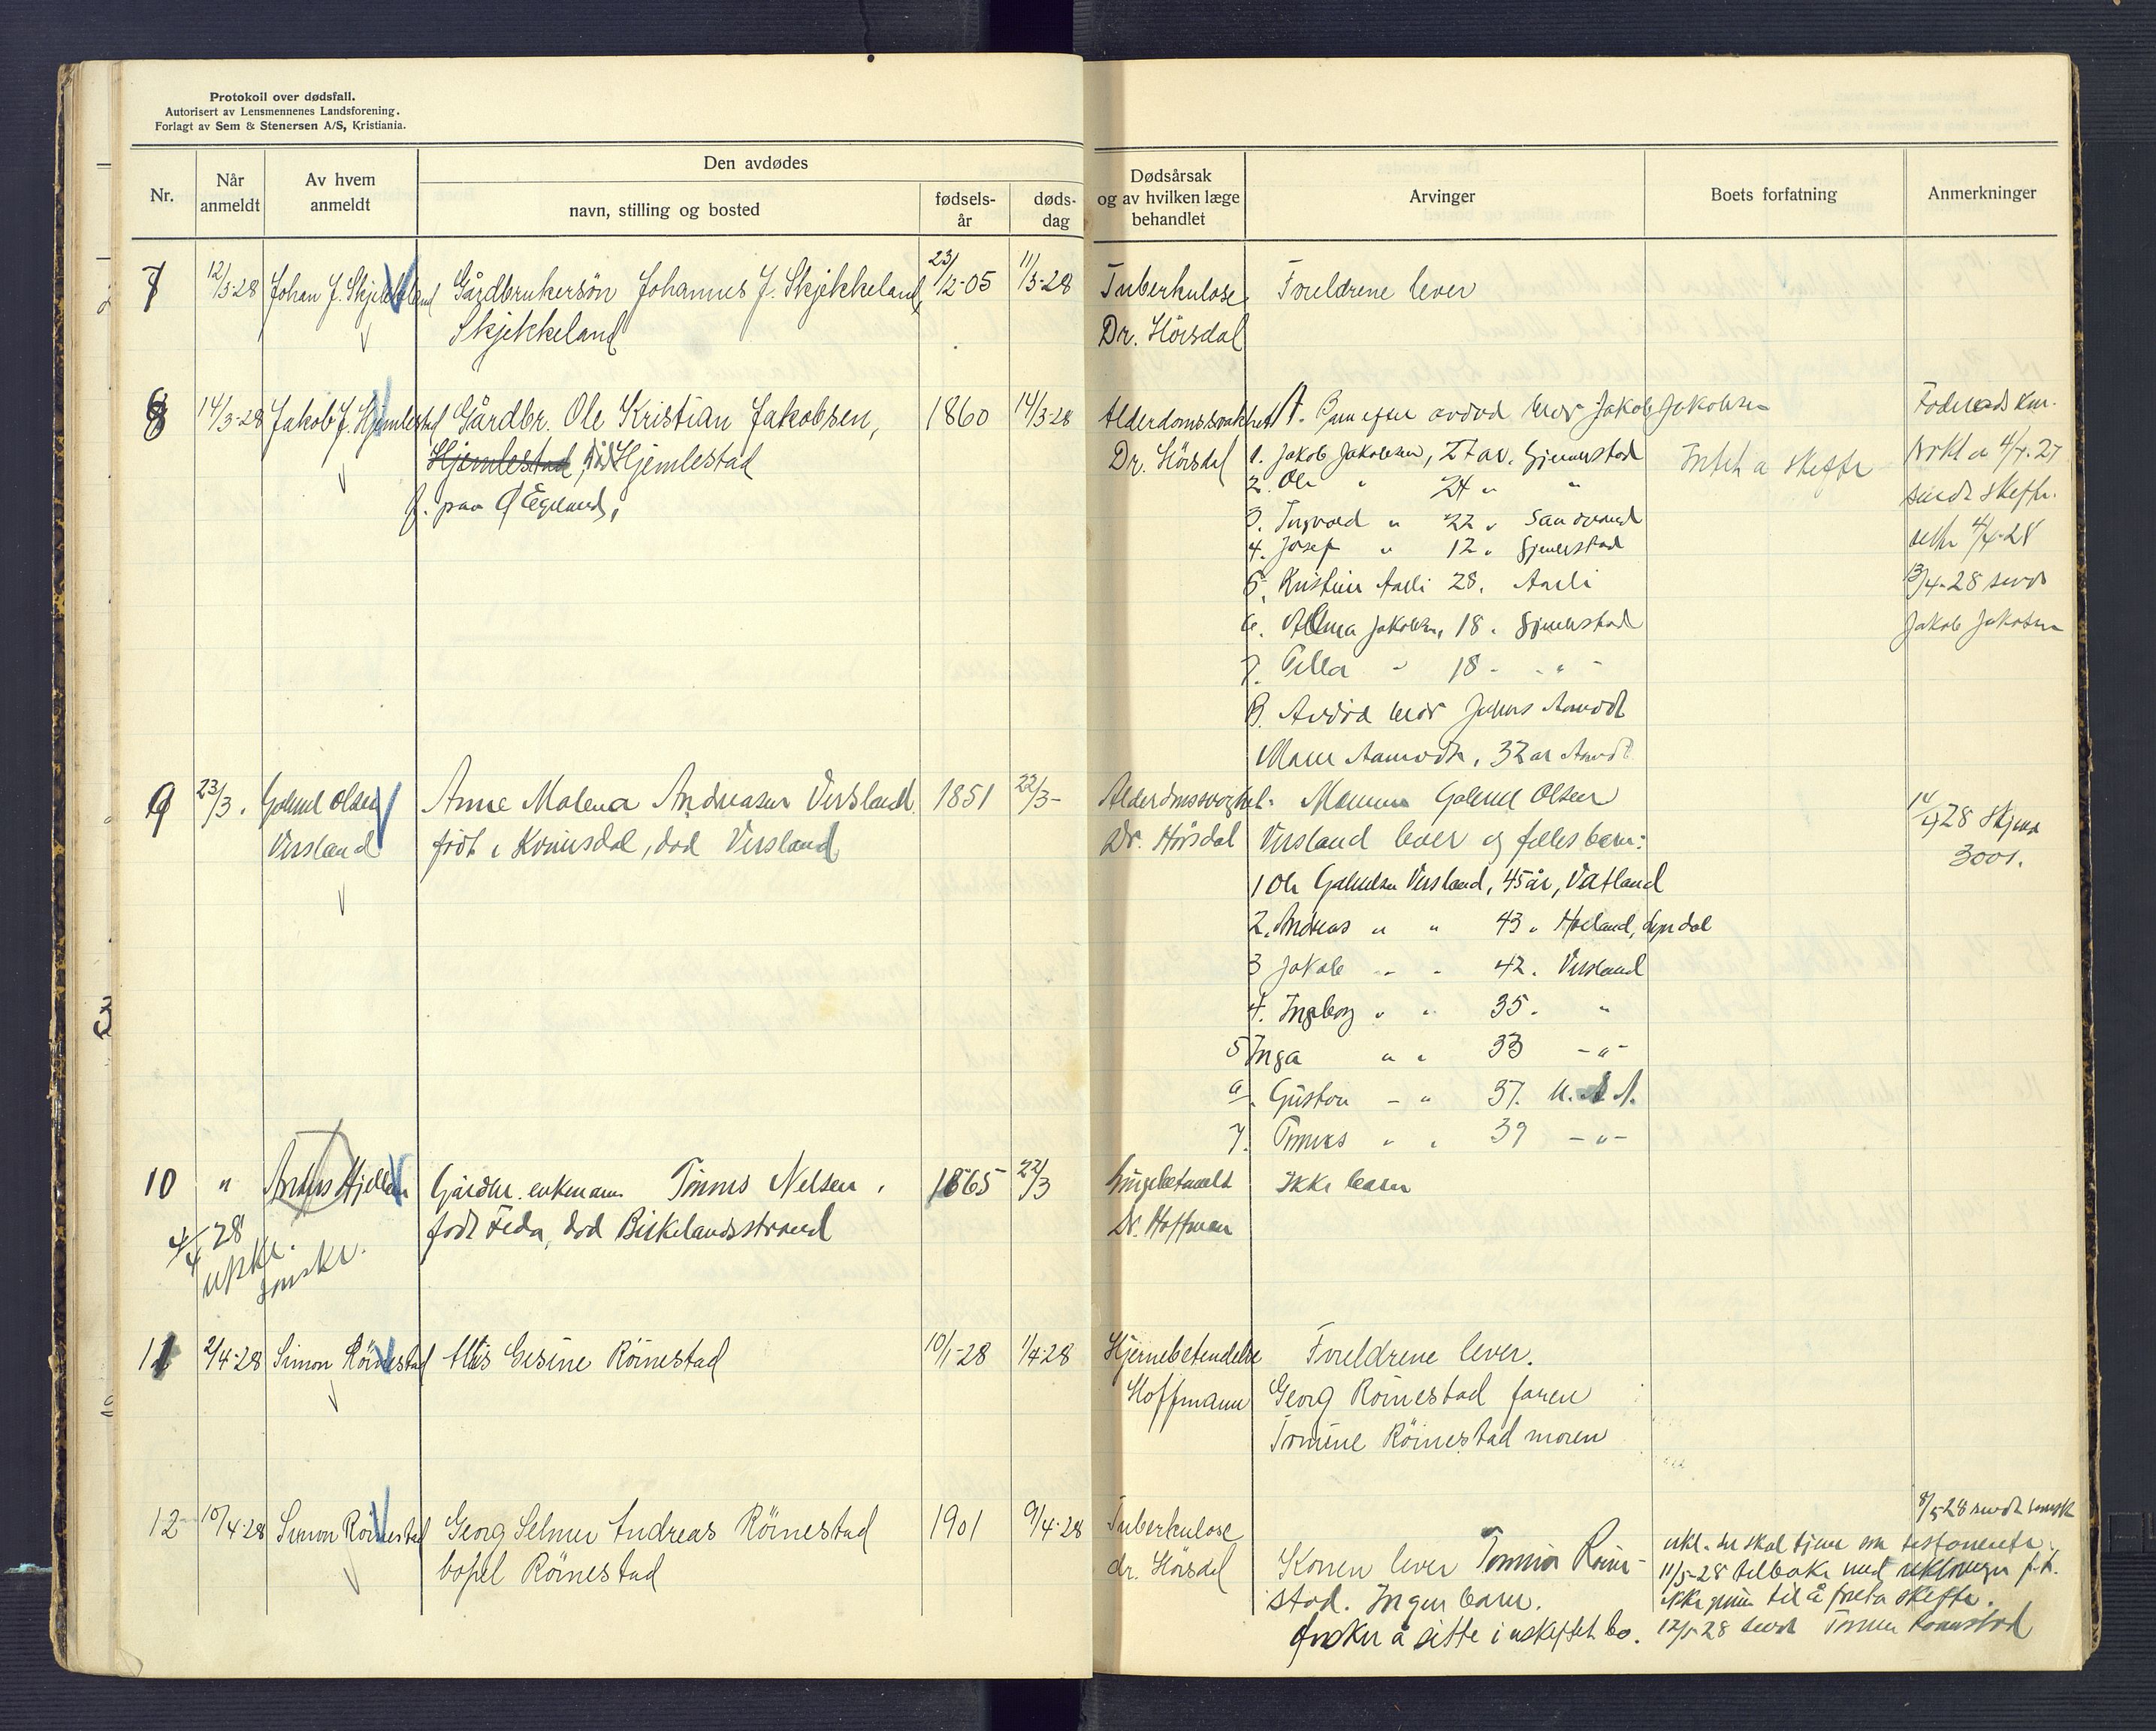 Protokoll over dødsfall.
Autorisert av Lensmennenes Landsforening.
Forlagt av Sem & Stenersen A/S, Kristiania.
Nr.
Når anmeldt
Av hvem anmeldt
Den avdødes
navn, stilling og bosted
fødsels-år
døds-dag
Dødsårsak og av hvilken læge behandlet
Arvinger
Boets forfatning
Anmerkninger
7 12/3-28 Johan J. Skjekkeland Gårdbrukersön Johannes J. Skjekkeland, 23/12-05 11/3-28 Tuberkulose Foreldrene lever
Skjekkeland Dr. Hörsdal
8 14/3-28 Jakob J. Hjemlestad Gårdbr. Ole Kristian Jakobsen, 1860 14/3-28 Alderdomssvakhet A. Barn efter avdød bror Jakob Jakobsen
Hjemlestad, Hjemlestad Dr. Hörsdal 1. Jakob Jakobsen, år. Gjemlestad
f. paa Egeland,
2. Ole " 24 " "
3. Ingvald " 22 " Sandvand
4. Josef " 12 " Gjemlestad
5. Kristine Aarli 28. Aarli
6. Alma Jakobsen, 18. Gjemlestad
7. Tilla " 18 - " -
B. Avdød bror Aamodt
Aamodt, 32 år Aamodt
Intet a skifte
4/4-28
13/4-28 sendt
Jakob Jakobsen
9 23/3. Gabriel Olsen Anne Malena Andreasen Versland 1851 22/3- Alderdomssvaghet. Mannen Gabriel Olsen
Versland född i Kvinesdal, död Versland Dr. Hörsdal Versland lever og felles barn:
1 Ole Gabrielsen Versland, 45 år, Vatland
2. Andreas " " 43 " Høiland, Lyngdal
3 Jakob " " 42. Versland
4. Ingeborg " " 35. "
5 Inga " " 33 - " -
6. Gustav - " 37. U.S.A.
7. Tønnes " " 39 - " -
28 Skjema
3001.
10 " Anders Gårdbr. enkemann Tönnes Nelsen. 1865 22/3 Lungebetændelse Ikke barn
född Feda, död Birkelandsstrand Dr. Hoffman
4/4 28
11 2/4-28 Simon Röinestad Alis Gesine Röinestad 10/1-28 1/4-28 Hjernebetendelse Foreldrene lever.
Hoffmann Georg Röinestad faren
Tomine Röinestad moren
12 10/4-28 Simon Röinestad Georg Selmer Andreas Röinestad 1901 9/4-28 Tuberkulose
bopel Röinestad dr. Hörsdal Konen lever Tomine Röine-
stad. Ingen barn.
Ønsker å sitte i uskiftet bo.
8/5-28 sendt
erkl. der skal tjene som testamente.
11/5-28 tilbake med
til å foreta skifte.
12/5-28 sendt Tomine Röinestad